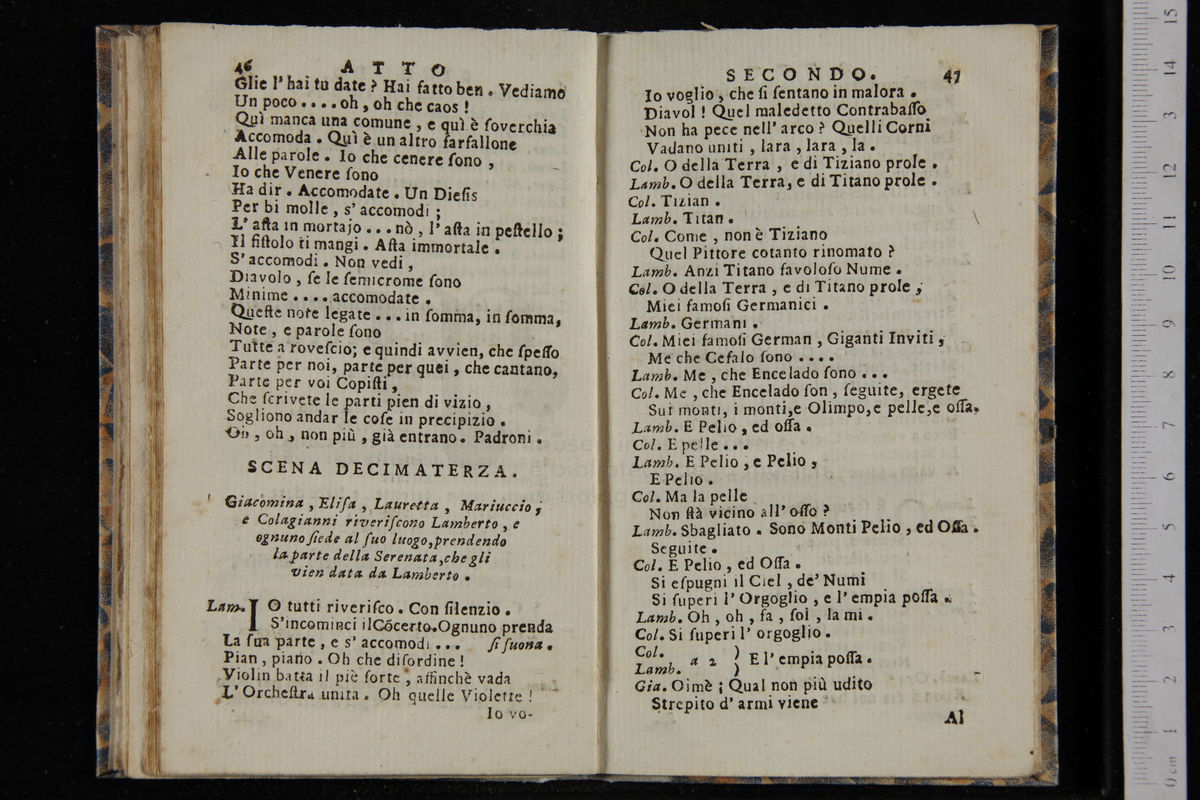 46 ATTO
Glie l'hai tu date ? Hai fatto ben . Vediamo
Un poco .... oh , oh che caos !
Quì manca una comune , e quì è ſoverchia
Accomoda . Quì è un altro farfallone
Alle parole . Io che cenere ſono ,
Io che Venere ſono
Ha dir . Accomodate . Un Dieſis
Per bi molle , s' accomodi ;
L' aſta in mortajo ... nò , l' aſta in peſtello ;
Il fiſtolo ti mangi . Aſta immortale .
S' accomodi . Non vedi ,
Diavolo , ſe le ſemicrome ſono
Minime .... accomodate .
Queſte note legate ... in ſomma, in ſomma,
Note , e parole ſono
Tutte a roveſcio; e quindi avvien, che ſpeſſo
Parte per noi, parte per quei , che cantano,
Parte per voi Copiſti ,
Che ſcrivete le parti pien di vizio ,
Sogliono andar le coſe in precipizio .
Oh , oh , non più , già entrano . Padroni .
SCENA DECIMATERZA.
Giacomina , Eliſa , Lauretta , Mariuccio ,
e Colagianni riveriſcono Lamberto , e
ognuno ſiede al ſuo luogo,prendendo
la parte della Serenata,che gli
vien data da Lamberto .
Lam. IO tutti riveriſco . Con ſilenzio .
S'incominci il Cõcerto.Ognuno prenda
La ſua parte , e s' accomodi ... ſi ſuona .
Pian , piano . Oh che diſordine !
Violin batta il piè forte , affinchè vada
L' Orcheſtra unita . Oh quelle Violette !
Io vo-
SECONDO. 47
Io voglio , che ſi ſentano in malora .
Diavol ! Quel maledetto Contrabaſſo
Non ha pece nell' arco ? Quelli Corni
Vadano uniti , lara , lara , la .
Col. O della Terra , e di Tiziano prole .
Lamb. O della Terra, e di Titano prole .
Col. Tizian .
Lamb. Titan .
Col. Come , non è Tiziano
Quel Pittore cotanto rinomato ?
Lamb. Anzi Titano favoloſo Nume .
Col. O della Terra , e di Titano prole ,
Miei famoſi Germanici .
Lamb. Germani .
Col. Miei famoſi German , Giganti Inviti ,
Me che Cefalo ſono ....
Lamb. Me , che Encelado ſono ...
Col. Me , che Encelado ſon , ſeguite, ergete
Sui monti, i monti,e Olimpo,e pelle,e oſſa.
Lamb. E Pelio , ed oſſa .
Col. E pelle ...
Lamb. E Pelio , e Pelio ,
E Pelio .
Col. Ma la pelle
Non ſtà vicino all' oſſo ?
Lamb. Sbagliato . Sono Monti Pelio , ed Oſſa .
Seguite .
Col. E Pelio , ed Oſſa .
Si eſpugni il Ciel , de' Numi
Si ſuperi l' Orgoglio , e l' empia poſſa .
Lamb. Oh , oh , fa , ſol , la mi .
Col. Si ſuperi l' orgoglio .
Col. )
a 2 E l' empia poſſa .
Lamb. )
Gia. Oimè ; Qual non più udito
Strepito d' armi viene
Al